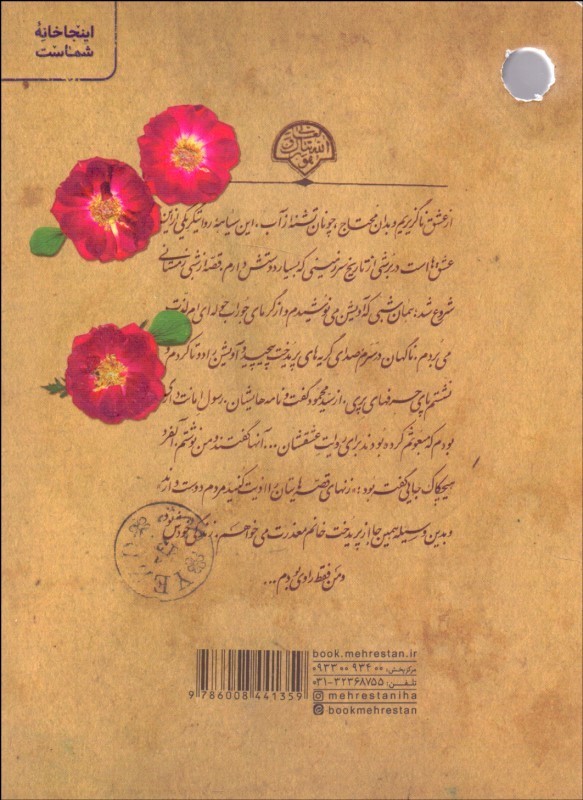 اینجا خانهٔ
شماست
از عشق ناگزیریم و بدان محتاج، چونان تشنه از آب، این سیاهه روایتگر یکی از این
عشق‌هاست در برشی از تاریخ سرزمینی که بسیار دوستش دارم. قصه از شبی زمستانی
شروع شد؛ همان شبی که آویشن می‌نوشیدم و از گرمای جوراب حوله‌ای‌ام لذت
می‌بردم. ناگهان در سرم صدای گریه‌های پریدخت پیچید و آویشن را وا دو تا کردم و
نشستم پای حرفهای پری. از سید محمود گفت و نامه‌هایشان. رسول امانت‌داری
بودم که مبعوثم کرده بودند برای روایت عشقشان... آنها گفتند و من نوشتم. آلفرد
هیچکاک جایی گفته بود: «زنهای قصه‌هایتان را اذیت کنید مردم دوست دارند»
و بدین وسیله همین جا از پریدخت خانم معذرت می‌خواهم. زندگی خودش
و من فقط راوی بودم...
YE
book.mehrestan.ir
مرکز پخش: ۰۹۳۳۰۰ ۹۳۴۰۰
تلفن: ۰۳۱-۳۲۳۶۸۷۵۵
mehrestaniha
bookmehrestan
9 786008 441359